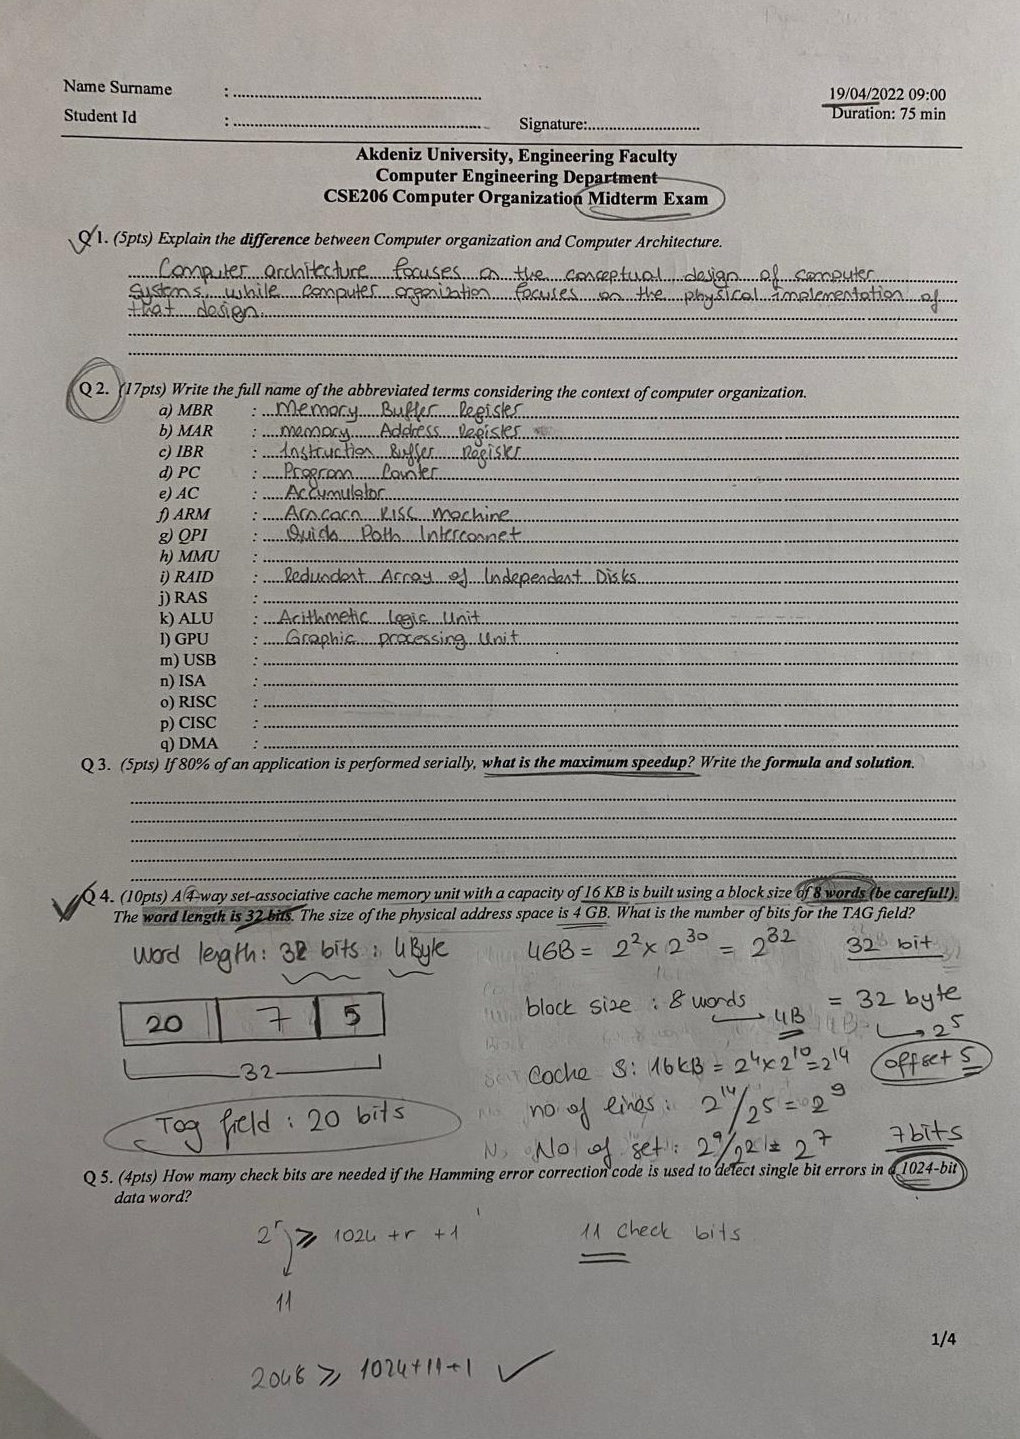 Name Surname : ........................................
19/04/2022 09:00
Student Id : ........................................ Signature:............................
Duration: 75 min
Akdeniz University, Engineering Faculty
Computer Engineering Department
CSE206 Computer Organization Midterm Exam
Q1. (5pts) Explain the difference between Computer organization and Computer Architecture.
Computer architecture focuses on the conceptual design of computer
systems, while computer organization focuses on the physical implementation of
that design.
Q 2. (17pts) Write the full name of the abbreviated terms considering the context of computer organization.
a) MBR : Memory Buffer Register
b) MAR : memory Address Register
c) IBR : Instruction Buffer Register
d) PC : Program Counter
e) AC : Accumulator
f) ARM : Arocorn RISC Machine
g) QPI : Quick Path Interconnet
h) MMU :
i) RAID : Redundant Array of Independent Disks
j) RAS :
k) ALU : Arithmetic logic Unit
l) GPU : Graphic processing Unit
m) USB :
n) ISA :
o) RISC :
p) CISC :
q) DMA :
Q 3. (5pts) If 80% of an application is performed serially, what is the maximum speedup? Write the formula and solution.
Q 4. (10pts) A 4-way set-associative cache memory unit with a capacity of 16 KB is built using a block size of 8 words (be careful!).
The word length is 32 bits. The size of the physical address space is 4 GB. What is the number of bits for the TAG field?
word length: 32 bits : 4 Byte
4GB = 2² x 2³⁰ = 2³² 32 bit
block size : 8 words → 4B = 32 byte → 2⁵
20 7 5
32
Cache S: 16 KB = 2⁴ x 2¹⁰ = 2¹⁴ offset 5
no of lines : 2¹⁴/2⁵ = 2⁹
Tag field : 20 bits
No of set : 2⁹/2² = 2⁷ 7 bits
Q 5. (4pts) How many check bits are needed if the Hamming error correction code is used to detect single bit errors in a 1024-bit
data word?
2ʳ ⩾ 1024 + r + 1 11 check bits
11
1/4
2048 ⩾ 1024+11+1 ✓